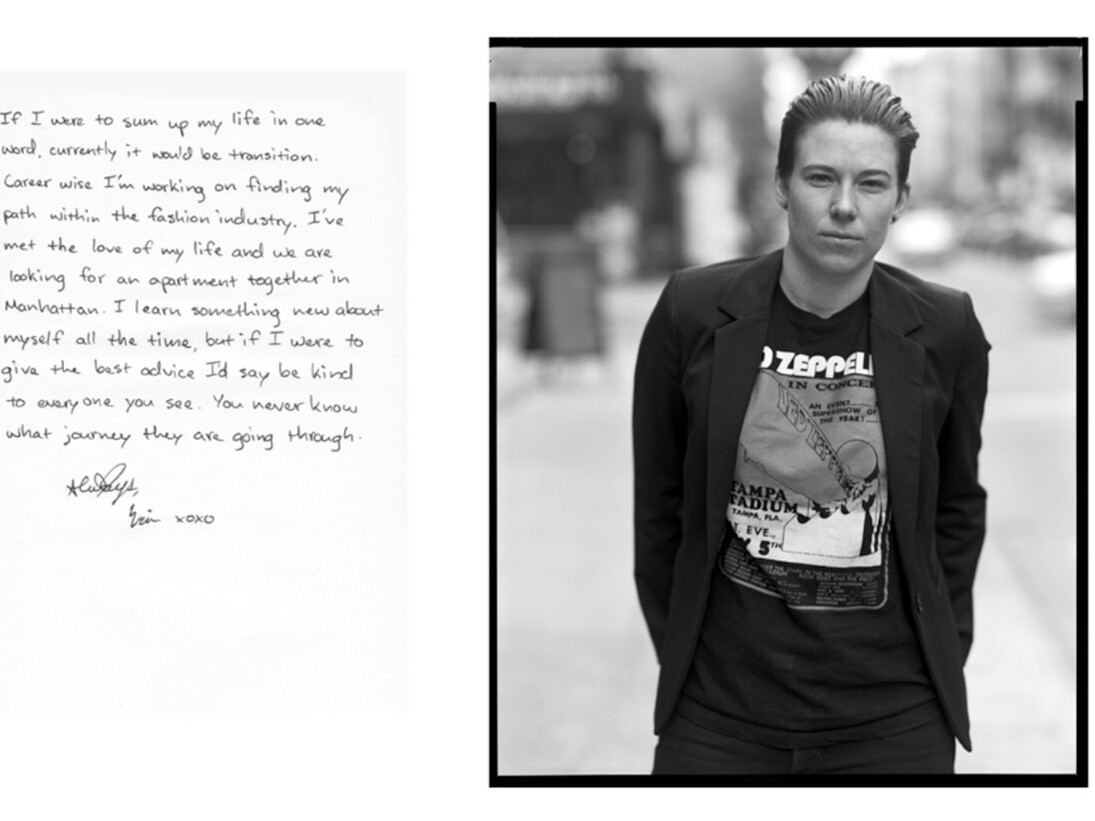 If I were to sum up my life in one
word, currently it would be transition.
Career wise I'm working on finding my
path within the fashion industry. I've
met the love of my life and we are
looking for an apartment together in
Manhattan. I learn something new about
myself all the time, but if I were to
give the best advice I'd say be kind
to everyone you see. You never know
what journey they are going through.
Always,
Erin xoxo
D ZEPPEL
IN CONCER
AN EVENT......
SUPERSHOW OF
THE YEAR?....
LED ZEPPELIN
TAMPA
TADIUM
TAMPA, FLA.
T. EVE.,
5TH